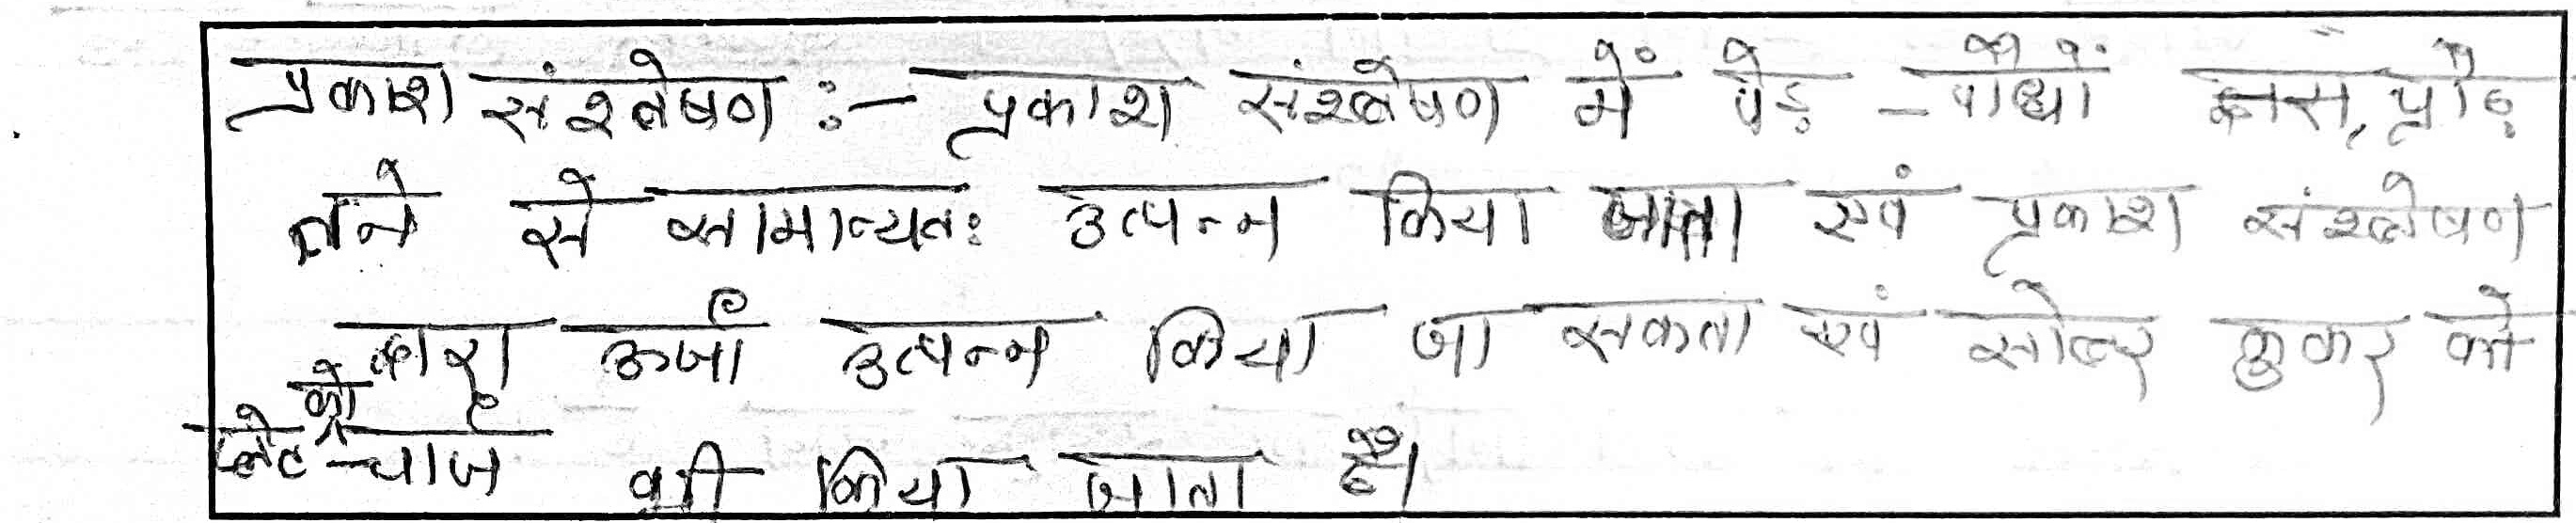 प्रकाश संश्लेषण :- प्रकाश संश्लेषण में पेड़ - पौधों घास, प्रौढ़
तने से सामान्यतः उत्पन्न किया जाता एवं प्रकाश संश्लेषण
द्वारा ऊर्जा उत्पन्न किया जा सकता एवं सोलर कुकर को
प्लेट को चार्ज भी किया जाता है।